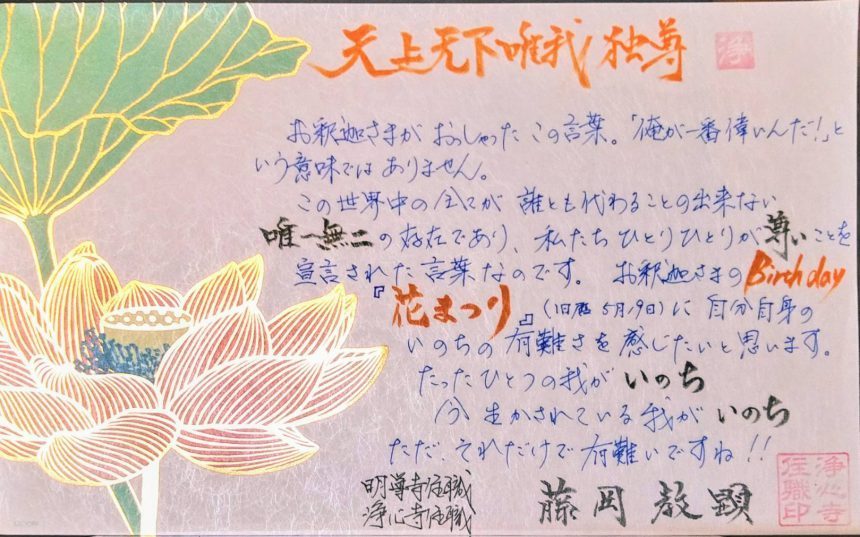 天上天下唯我独尊
浄
お釈迦さまが おっしゃった この言葉。「俺が一番偉いんだ!」と
いう意味では ありません。
この世界中の 全てが 誰とも代わることの出来ない
唯一無二の存在であり、私たち ひとりひとりが 尊いことを
宣言された言葉なのです。 お釈迦さまの Birthday
『花まつり』(旧暦 5月19日)に 自分自身の
いのちの 有難さを 感じたいと思います。
たったひとつの我が いのち
今 生かされている 我が いのち
ただ、それだけで 有難いですね!!
明導寺住職
浄心寺住職
藤岡 教顕
浄心寺
住職印